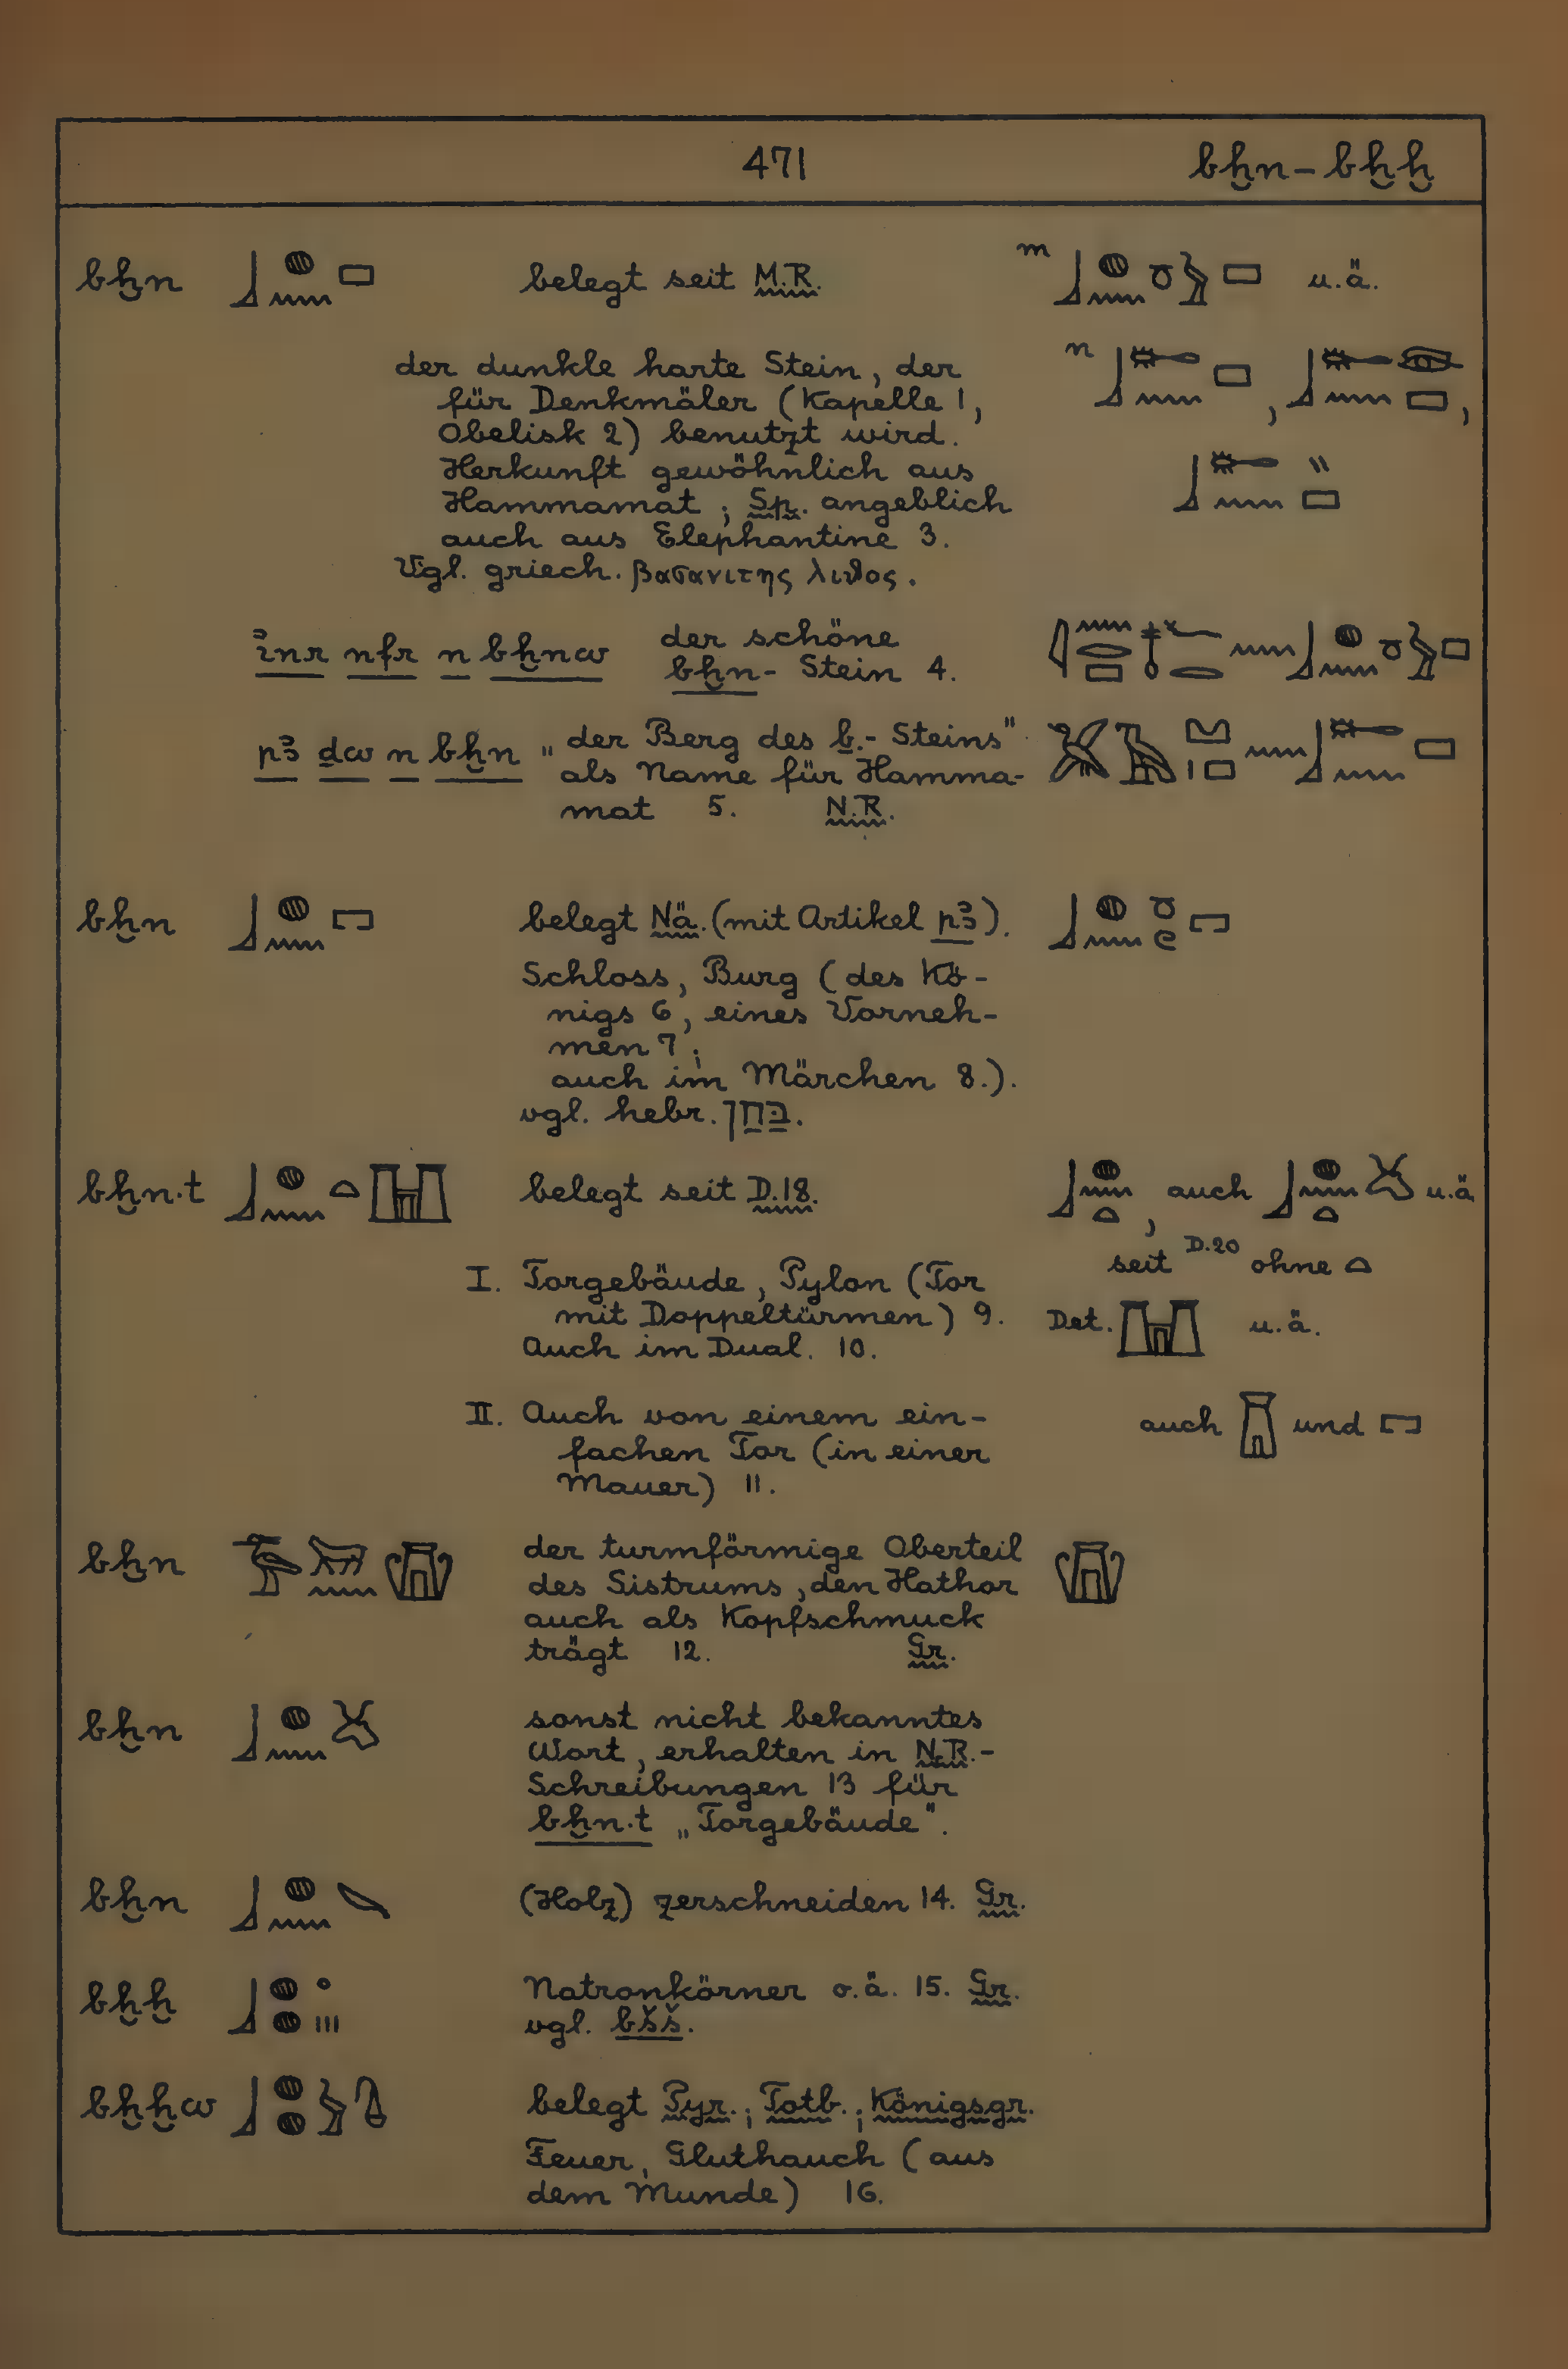 471 bḫn – bḫḫ
bḫn belegt seit M.R. m u.ä.
der dunkle harte Stein, der n
für Denkmäler (Kapelle 1,
Obelisk 2) benutzt wird.
Herkunft gewöhnlich aus
Hammamat; Sp. angeblich
auch aus Elephantine 3.
Vgl. griech. βασανιτης λιθος.
ꞽnr nfr n bḫnw der schöne
bḫn- Stein 4.
pꜣ ḏw n bḫn „der Berg des b.- Steins"
als Name für Hamma-
mat 5. N.R.
bḫn belegt Nä. (mit Artikel pꜣ).
Schloss, Burg (des Kö-
nigs 6, eines Vorneh-
men 7;
auch im Märchen 8.).
vgl. hebr. בחן.
bḫn.t belegt seit D.18. , auch u.ä
seit D.20 ohne
I. Torgebäude, Pylon (Tor
mit Doppeltürmen) 9. Det. u.ä.
Auch im Dual. 10.
II. Auch von einem ein- auch und
fachen Tor (in einer
Mauer) 11.
bḫn der turmförmige Oberteil
des Sistrums, den Hathor
auch als Kopfschmuck
trägt 12. Gr.
bḫn sonst nicht bekanntes
Wort, erhalten in N.R.-
Schreibungen 13 für
bḫn.t „Torgebäude".
bḫn (Holz) zerschneiden 14. Gr.
bḫḫ Natronkörner o.ä. 15. Gr.
vgl. bšš.
bḫḫw belegt Pyr.; Totb.; Königsgr.
Feuer, Gluthauch (aus
dem Munde) 16.